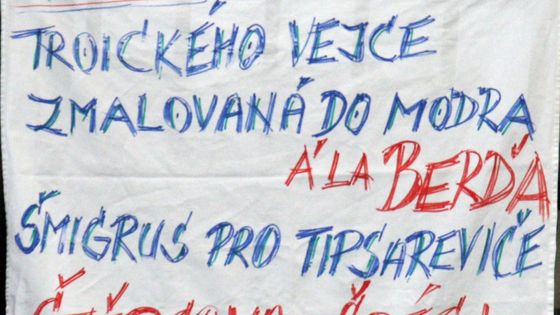 TROICKÉHO VEJCE
ZMALOVANÁ DO MODRA
Á LA BERĎA
ŠMIGRUS PRO TIPSAREVIČE